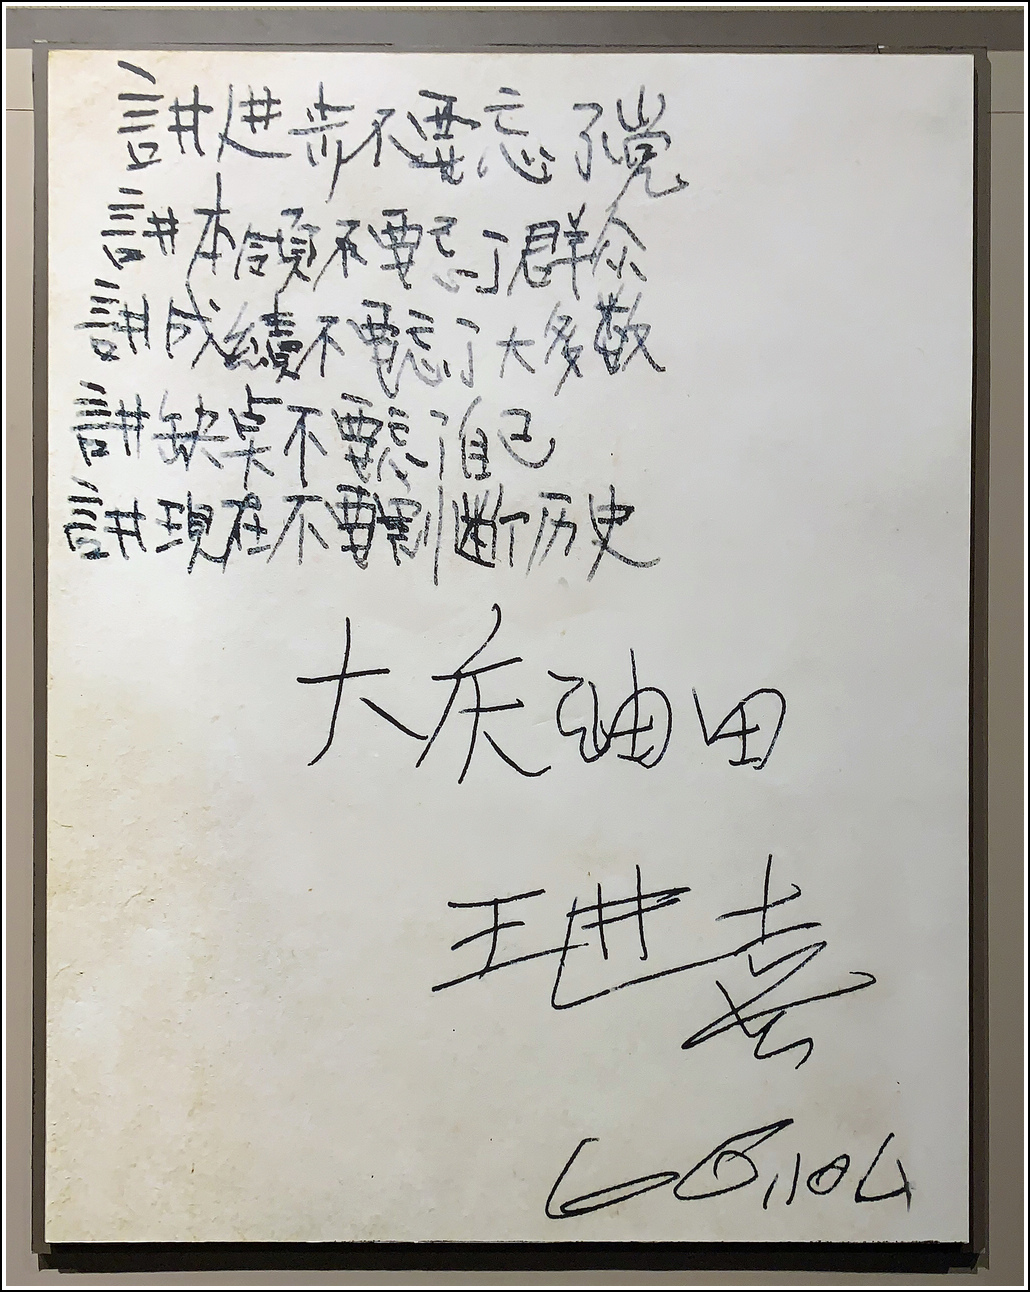 講进步不要忘了党
講本領不要忘了群众
講成績不要忘了大多数
講缺点不要忘了自己
講現在不要割断历史
大庆油田
王进喜
66.10.4